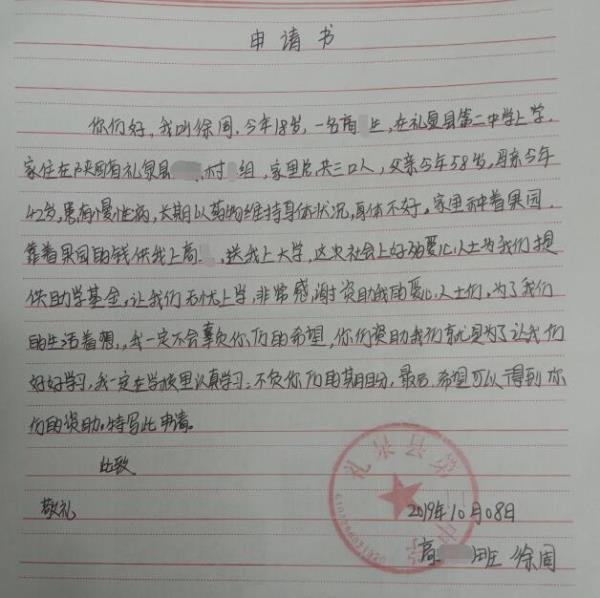 申请书
你们好，我叫徐周，今年18岁，一名高生，在礼泉县第二中学上学，
家住在陕西省礼泉县村组，家里总共三口人，父亲今年58岁，母亲今年
42岁，患有慢性病，长期以药物维持身体状况，身体不好，家里种着果园
靠着果园的钱供我上高，送我上大学，这次社会上好的爱心人士为我们提
供助学基金，让我们无忧上学，非常感谢资助我的爱心人士们，为了我们
的生活着想，，我一定不会辜负你们的希望，你们资助我们就是为了让我们
好好学习，我一定在学校里认真学习，不负你们的期盼，最后，希望可以得到你
们的资助。特写此申请。
此致
敬礼
2019年10月08日
高班 徐周
礼泉县第二中学